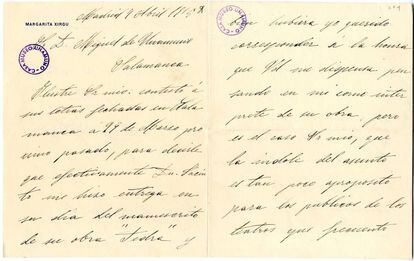 MARGARITA XIRGU
Madrid 1 Abril 19
S. D. Miguel de Unamuno
Salamanca
CASA MUSEO UNAMUNO
Ilustre Sr mio: contesto á
sus letras fechadas en Sala
manca á 29 de Marzo pro
ximo pasado, para decirle
que efectivamente Dn.
to me hizo entrega en
su dia del manuscrito
de su obra "Fedra" y
CASA MUSEO UNAMUNO
bien hubiera yo querido
corresponder á la honra
que Vd me dispensa pen
sando en mi como inter
prete de su obra, pero
es el caso Sr mio, que
la indole del asunto
es tan poco aproposito
para los publicos de los
teatros que frecuento